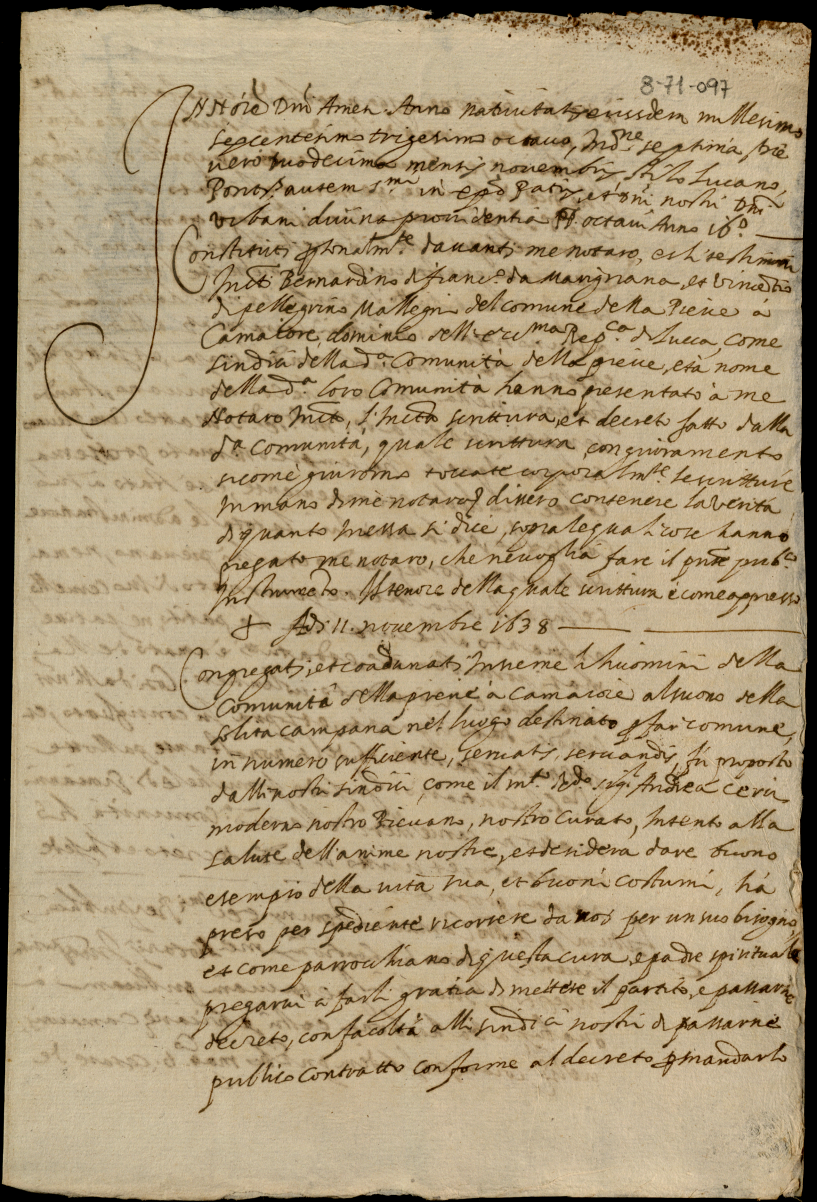 8-71-097
IN Nõie Dñi Amen. Anno nativitatis eiusdem millesimo
sexcentesimo trigesimo octavo, Ind.ne septima, Die
vero duodecima mensis novembris stilo Lucano,
Pont.s autem S.mi in Patris, et Dñi nostri Dñi
Urbani divina providentia PP. octavi Anno 16.o
Constituti psonalm.te davanti me notaro, et li testimoni
Inf.ti Bernardino di franc.o da Marignana, et Vincentio
di pellegrino Mallegni del comune della Pieve à
Camaiore, dominio dell'ecc.ma Rep.ca di Lucca, come
sindici della d.a Comunità della pieve, et à nome
della d.a loro Comunità hanno presentato à me
Notaro Inf.to, l'Inf.ta scrittura, et decreto fatto dalla
d.a Comunità, quale scrittura con giuramento
sicome giurorno toccate corporalm.te le scritture
In mano di me notaro dissero contenere la verità
di quanto In essa si dice, sopra le quali cose hanno
pregato me notaro, che ne voglia fare il pñte pub.co
Instrumento. Il tenore della quale scrittura è come appresso
✝ Adi 11. novembre 1638
Congregati, et coadunati Insieme li huomini della
Comunità della pieve à Camaiore al suono della
solita campana nel luogo destinato p far comune,
in numero sufficiente, servatis servandis, fù proposto
dalli nostri sindici, come il m.to R.do sig.r Andrea Cerù
moderno nostro Pievano, nostro Curato, Intento alla
salute dell'anime nostre, et desidera dare buono
esempio della vita sua, et buoni costumi, hà
preso per espediente ricorrere da noi per un suo bisogno,
et come parrochiano di questa cura, e padre spirituale
pregarvi à farli gratia di mettere il partito, e passarne
decreto, con facoltà alli sindici nostri di passarne
publico contratto conforme al decreto p mandarlo